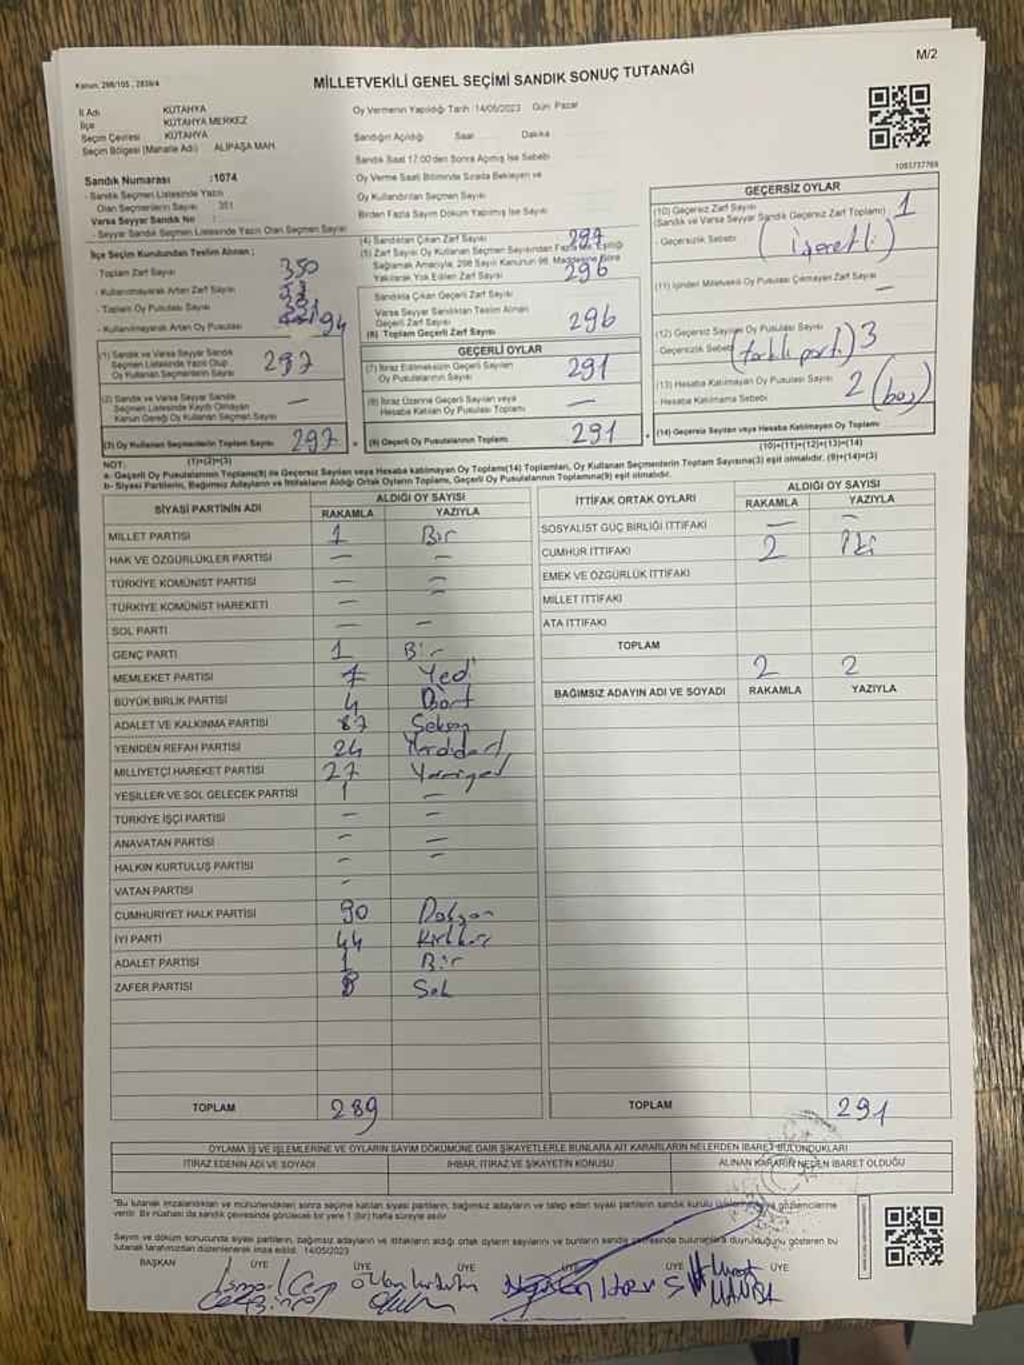 Kanun: 298/105 , 2839/4
M/2
MİLLETVEKİLİ GENEL SEÇİMİ SANDIK SONUÇ TUTANAĞI
İl Adı KÜTAHYA
İlçe KÜTAHYA MERKEZ
Seçim Çevresi KÜTAHYA
Seçim Bölgesi (Mahalle Adı) ALİPAŞA MAH.
Oy Vermenin Yapıldığı Tarih :14/05/2023 Gün: Pazar
Sandığın Açıldığı Saat Dakika
Sandık Saat 17:00'den Sonra Açılmış İse Sebebi
Sandık Numarası :1074
- Sandık Seçmen Listesinde Yazılı
Olan Seçmenlerin Sayısı : 351
Varsa Seyyar Sandık No
- Seyyar Sandık Seçmen Listesinde Yazılı Olan Seçmen Sayısı
Oy Verme Saati Bitiminde Sırada Bekleyen ve
Oy Kullandırılan Seçmen Sayısı
Birden Fazla Sayım Döküm Yapılmış İse Sayısı
İlçe Seçim Kurulundan Teslim Alınan ;
- Toplam Zarf Sayısı 350
- Kullanılmayarak Artan Zarf Sayısı
- Toplam Oy Pusulası Sayısı
- Kullanılmayarak Artan Oy Pusulası 94
(1) Sandık ve Varsa Seyyar Sandık
Seçmen Listesinde Yazılı Olup
Oy Kullanan Seçmenlerin Sayısı 297
(2) Sandık ve Varsa Seyyar Sandık
Seçmen Listesinde Kayıtlı Olmayan
Kanun Gereği Oy Kullanan Seçmen Sayısı —
(3) Oy Kullanan Seçmenlerin Toplam Sayısı 297
(1)+(2)=(3)
(4) Sandıktan Çıkan Zarf Sayısı 297
(5) Zarf Sayısı Oy Kullanan Seçmen Sayısından Fazla İse, Eşitliği
Sağlamak Amacıyla, 298 Sayılı Kanunun 98. Maddesine Göre
Yakılarak Yok Edilen Zarf Sayısı 296
Sandıkta Çıkan Geçerli Zarf Sayısı
Varsa Seyyar Sandıktan Teslim Alınan
Geçerli Zarf Sayısı
(6) Toplam Geçerli Zarf Sayısı 296
GEÇERLİ OYLAR
(7) İtiraz Edilmeksizin Geçerli Sayılan
Oy Pusulalarının Sayısı 291
(8) İtiraz Üzerine Geçerli Sayılan veya
Hesaba Katılan Oy Pusulaları Toplamı —
(9) Geçerli Oy Pusulalarının Toplamı 291
1083737769
GEÇERSİZ OYLAR
(10) Geçersiz Zarf Sayısı
(Sandık ve Varsa Seyyar Sandık Geçersiz Zarf Toplamı) 1
- Geçersizlik Sebebi (işaretli)
(11) İçinden Milletvekili Oy Pusulası Çıkmayan Zarf Sayısı —
(12) Geçersiz Sayılan Oy Pusulası Sayısı
- Geçersizlik Sebebi (farklı parti) 3
(13) Hesaba Katılmayan Oy Pusulası Sayısı
- Hesaba Katılmama Sebebi 2 (boş)
(14) Geçersiz Sayılan veya Hesaba Katılmayan Oy Toplamı
(10)+(11)+(12)+(13)=(14)
NOT:
a- Geçerli Oy Pusulalarının Toplamı(9) ile Geçersiz Sayılan veya Hesaba katılmayan Oy Toplamı(14) Toplamları, Oy Kullanan Seçmenlerin Toplam Sayısına(3) eşit olmalıdır. (9)+(14)=(3)
b- Siyasi Partilerin, Bağımsız Adayların ve İttifakların Aldığı Ortak Oyların Toplamı, Geçerli Oy Pusulalarının Toplamına(9) eşit olmalıdır.
SİYASİ PARTİNİN ADI ALDIĞI OY SAYISI
RAKAMLA YAZIYLA
MİLLET PARTİSİ 1 Bir
HAK VE ÖZGÜRLÜKLER PARTİSİ — —
TÜRKİYE KOMÜNİST PARTİSİ — —
TÜRKİYE KOMÜNİST HAREKETİ — —
SOL PARTİ — —
GENÇ PARTİ 1 Bir
MEMLEKET PARTİSİ 7 Yedi
BÜYÜK BİRLİK PARTİSİ 4 Dört
ADALET VE KALKINMA PARTİSİ 87
YENİDEN REFAH PARTİSİ 24
MİLLİYETÇİ HAREKET PARTİSİ 27
YEŞİLLER VE SOL GELECEK PARTİSİ —
TÜRKİYE İŞÇİ PARTİSİ — —
ANAVATAN PARTİSİ — —
HALKIN KURTULUŞ PARTİSİ — —
VATAN PARTİSİ —
CUMHURİYET HALK PARTİSİ 90
İYİ PARTİ 44
ADALET PARTİSİ 1 Bir
ZAFER PARTİSİ 8 Sek
TOPLAM 289
İTTİFAK ORTAK OYLARI ALDIĞI OY SAYISI
RAKAMLA YAZIYLA
SOSYALİST GÜÇ BİRLİĞİ İTTİFAKI — —
CUMHUR İTTİFAKI 2 İki
EMEK VE ÖZGÜRLÜK İTTİFAKI
MİLLET İTTİFAKI
ATA İTTİFAKI
TOPLAM 2 2
BAĞIMSIZ ADAYIN ADI VE SOYADI RAKAMLA YAZIYLA
TOPLAM 291
OYLAMA İŞ VE İŞLEMLERİNE VE OYLARIN SAYIM DÖKÜMÜNE DAİR ŞİKAYETLERLE BUNLARA AİT KARARLARIN NELERDEN İBARET BULUNDUKLARI
İTİRAZ EDENİN ADI VE SOYADI İHBAR, İTİRAZ VE ŞİKAYETİN KONUSU ALINAN KARARIN NEDEN İBARET OLDUĞU
"Bu tutanak imzalandıktan ve mühürlendikten sonra seçime katılan siyasi partilerin, bağımsız adayların ve talep eden siyasi partilerin sandık kurulu gözlemcilerine
verilir. Bir nüshası da sandık çevresinde görülecek bir yere 1 (bir) hafta süreyle asılır
Sayım ve döküm sonucunda siyasi partilerin, bağımsız adayların ve ittifakların aldığı ortak oyların sayılarını ve bunların sandık çevresinde bulunanlara duyurulduğunu gösteren bu
tutanak tarafımızdan düzenlenerek imza edildi. 14/05/2023
BAŞKAN ÜYE ÜYE ÜYE ÜYE ÜYE ÜYE